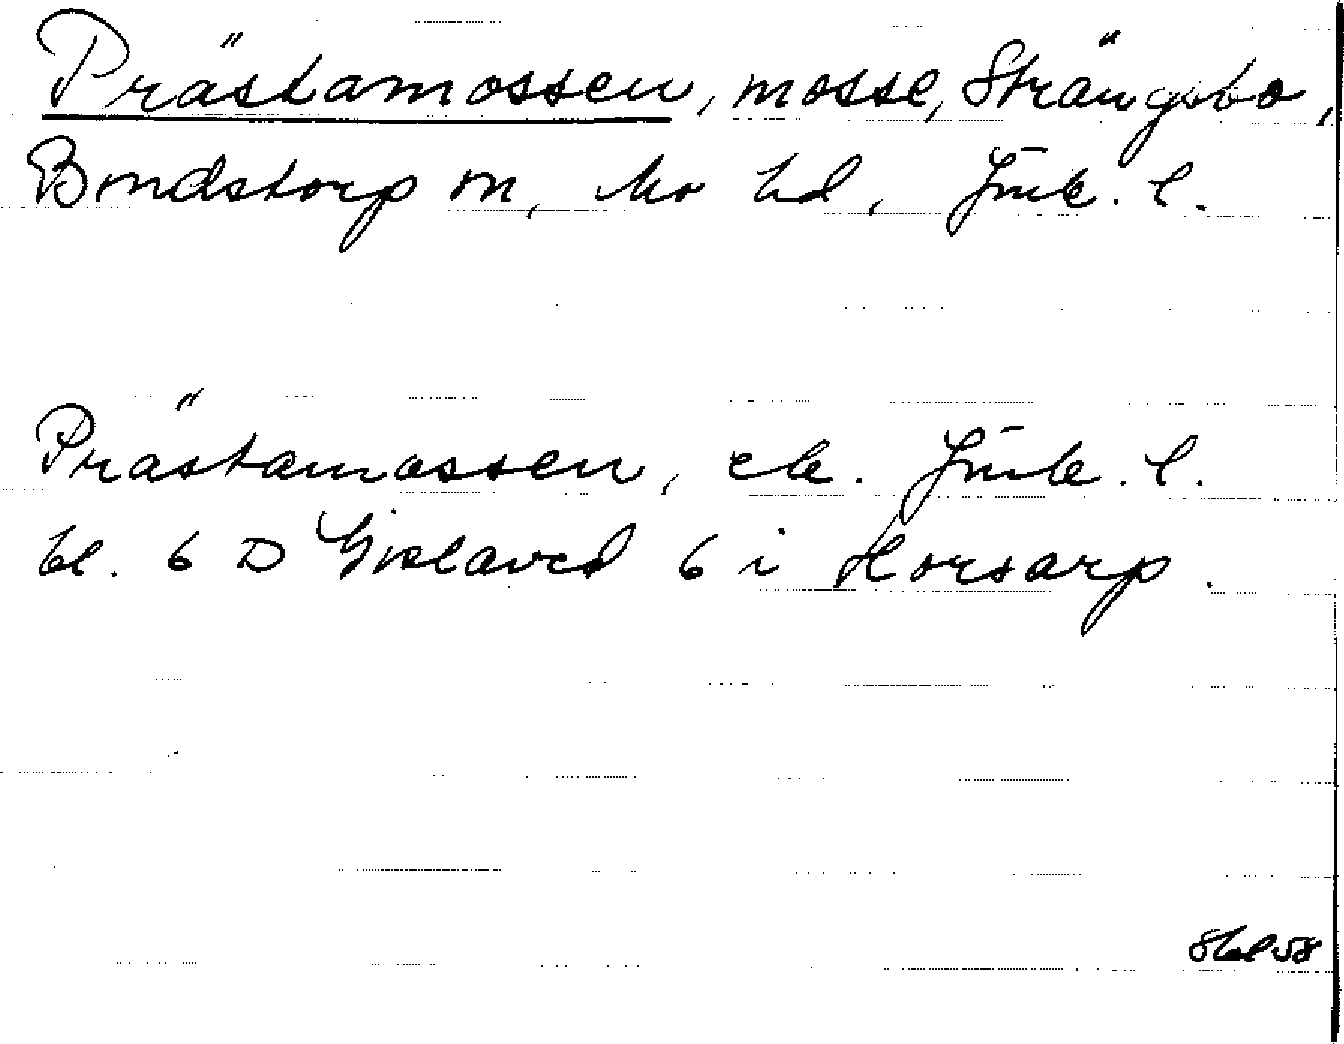 Prästamossen, mosse, Strängsbo,
Bondstorp sn, Mo hd, Jmk. l.
Prästamossen, ek. Jmk. l.
bl. 6 D Gislaved 6 i Horsarp.